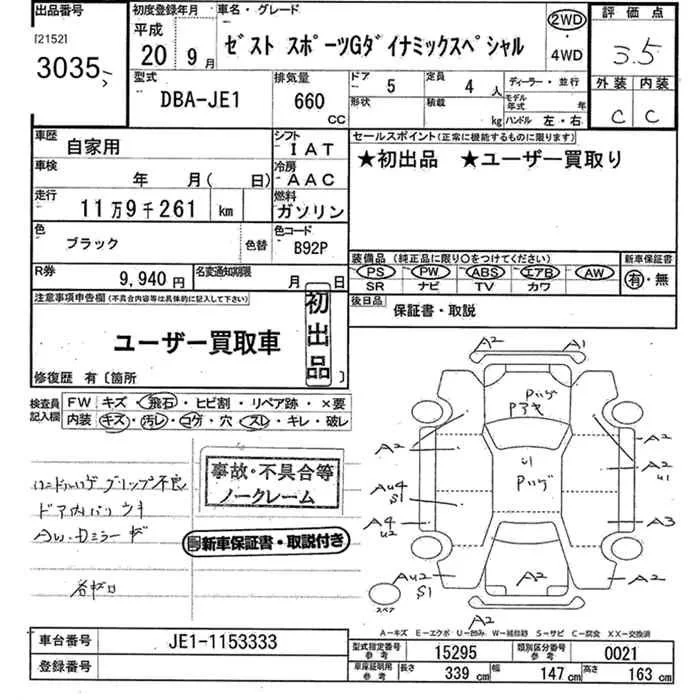 出品番号
[2152]
3035
初度登録年月
平成
20年 9月
車名・グレード
ゼスト スポーツGダイナミックスペシャル
2WD
・
4WD
評価点
3.5
外装 内装
C C
型式
DBA-JE1
排気量
660
CC
ドア 5
定員 4 人
形状
積載
kg
ディーラー・並行
モデル年式 年
ハンドル 左・右
車歴
自家用
シフト
IAT
車検
年 月( 日)
冷房
AAC
走行
11万9千261 km
燃料
ガソリン
色
ブラック
色替
色コード
B92P
R券
9,940円
名変通知期限
月 日
セールスポイント(正常に機能するものに限ります)
★初出品 ★ユーザー買取り
装備品(純正品に限り○をつけてください)
PS PW ABS エアB AW
SR ナビ TV カワ
新車保証書
有・無
後日品
保証書・取説
注意事項申告欄(不具合内容等は具体的に記入して下さい)
ユーザー買取車
初出品
修復歴 有〔箇所 〕
検査員記入欄
FW キズ・飛石・ヒビ割・リペア跡・×要
内装 キズ・汚レ・コゲ・穴・スレ・キレ・破レ
グリップ不良
ドア内バリウキ
AW・Dミラーキズ
事故・不具合等
ノークレーム
新車保証書・取説付き
A2 A1
A2
A2
U1
AU4
S1
A4
U2
A3
AU2
S1
A2
A2
A2
スペア
A-キズ E-エクボ U-凹み W-補修跡 S-サビ C-腐食 XX-交換済
車台番号
JE1-1153333
登録番号
型式指定番号 参考
15295
類別区分番号 参考
0021
車庫証明用 参考
長さ 339 cm 幅 147 cm 高さ 163 cm